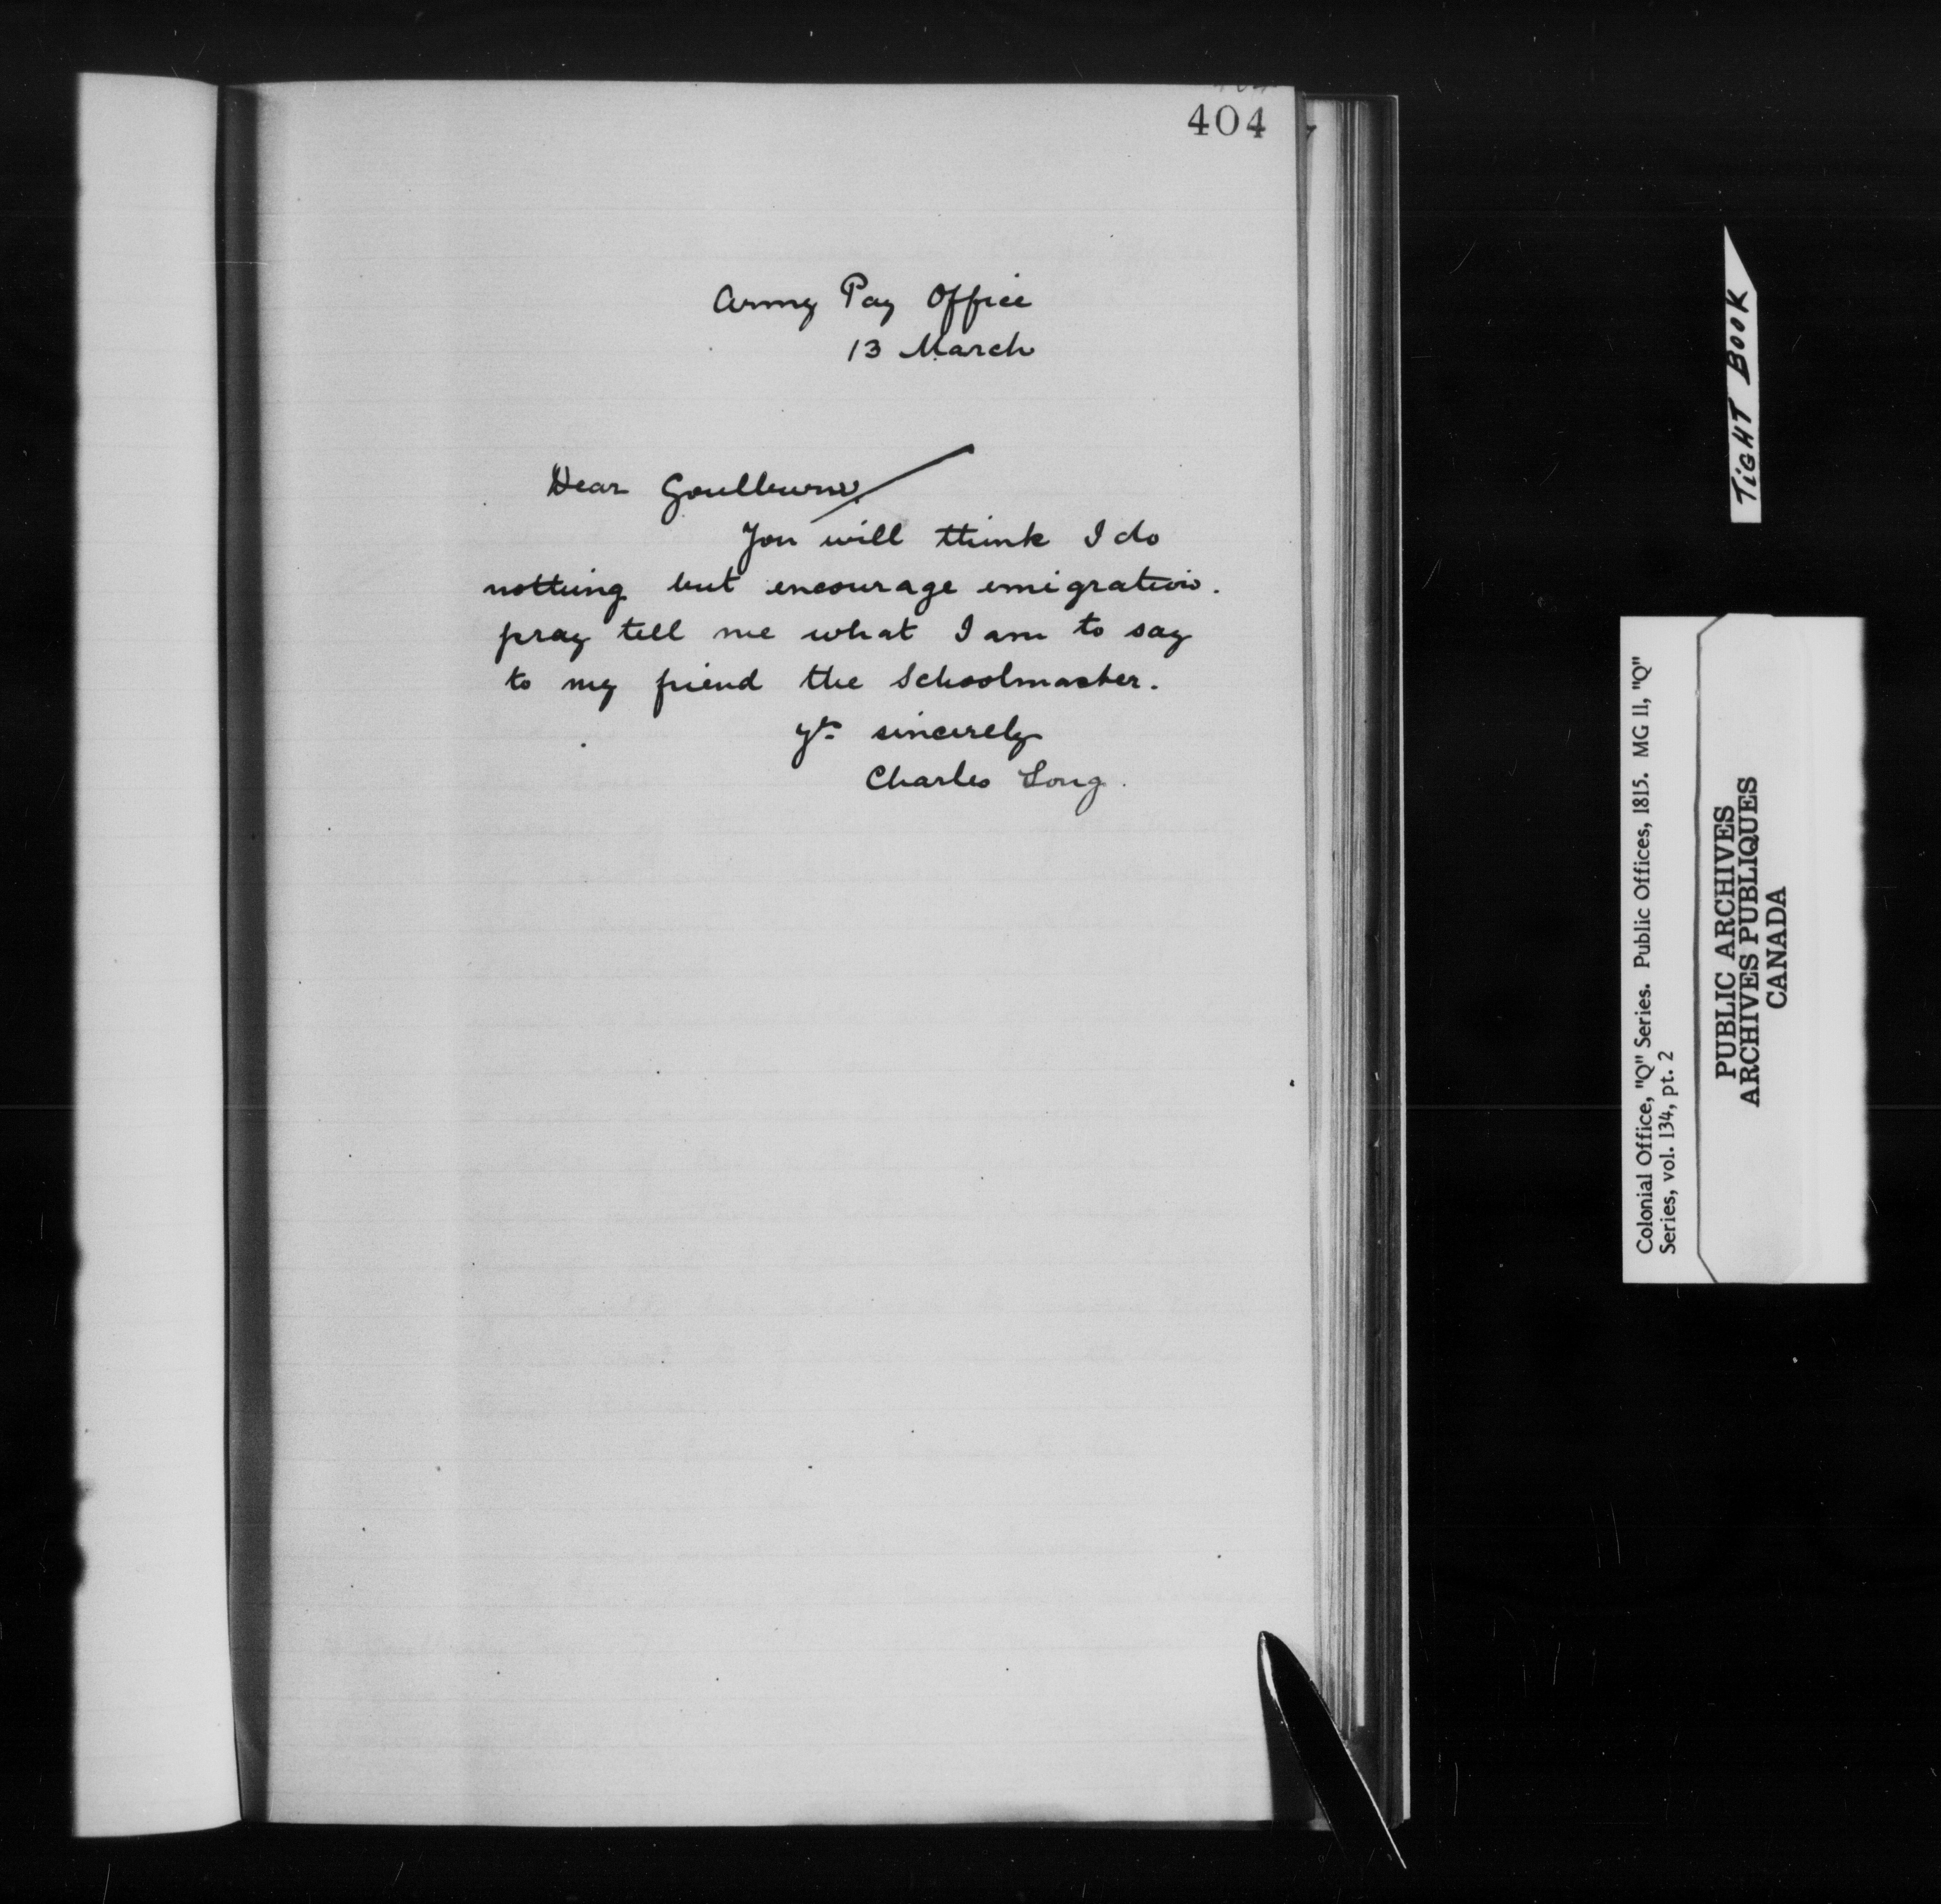 404
Army Pay Office
13 March
Dear Goulburn
You will think I do
nothing but encourage emigration.
pray tell me what I am to say
to my friend the Schoolmaster.
yrs sincerely
Charles Long.
TIGHT BOOK
Colonial Office, "Q" Series. Public Offices, 1815. MG 11, "Q"
Series, vol. 134, pt. 2
PUBLIC ARCHIVES
ARCHIVES PUBLIQUES
CANADA